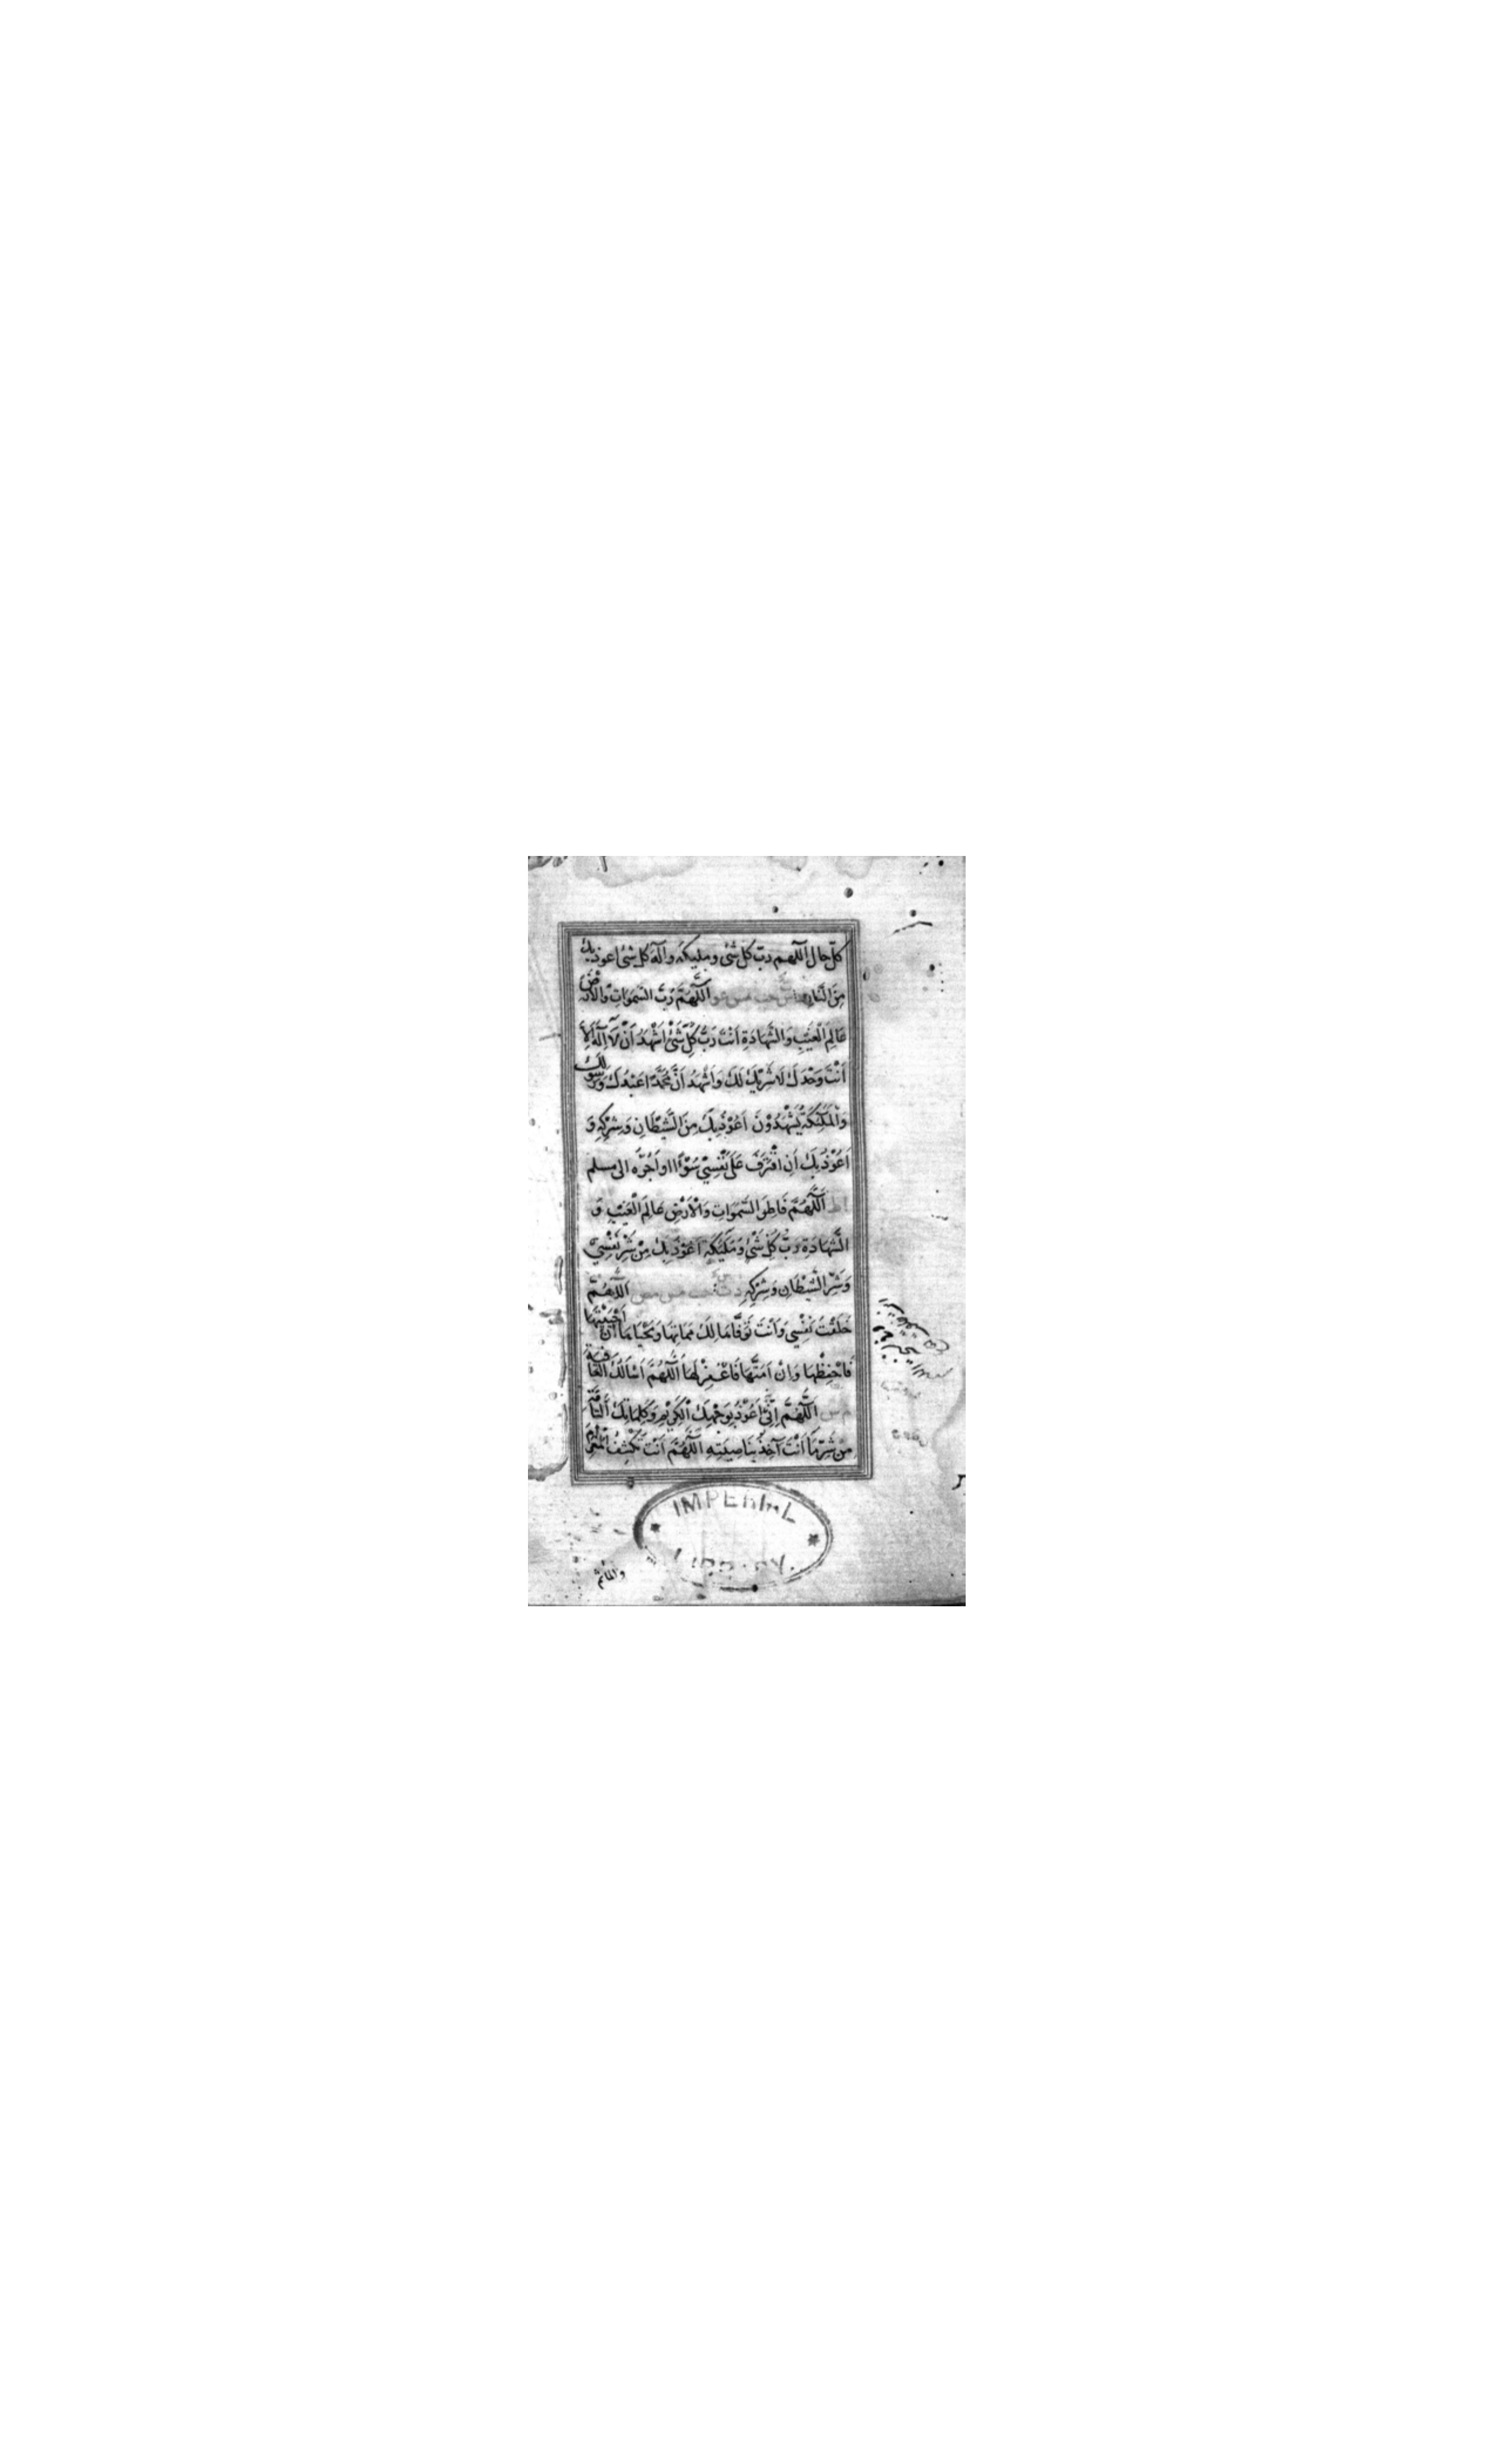 كلّ حال اللهم ربّ كل شئ ومليكه واله كل شئ اعوذ بك
مِنَ النَّارِ اَللّٰهُمَّ رَبَّ السَّمٰوَاتِ وَالْاَرْضِ
عَالِمَ الْغَيْبِ وَالشَّهَادَةِ اَنْتَ رَبُّ كُلِّ شَئٍ اَشْهَدُ اَنْ لَآ اِلٰهَ اِلَّا
اَنْتَ وَحْدَكَ لَا شَرِيْكَ لَكَ وَاَشْهَدُ اَنَّ مُحَمَّدًا عَبْدُكَ وَرَسُوْلُكَ
وَالْمَلٰئِكَةُ يَشْهَدُوْنَ اَعُوْذُ بِكَ مِنَ الشَّيْطَانِ وَشِرْكِهِ وَ
اَعُوْذُ بِكَ اَنْ اَقْتَرِفَ عَلٰى نَفْسِيْ سُوْءًا اَو اَجُرَّه الى مسلم
اَللّٰهُمَّ فَاطِرَ السَّمٰوَاتِ وَالْاَرْضِ عَالِمَ الْغَيْبِ وَ
الشَّهَادَةِ رَبَّ كُلِّ شَئٍ وَمَلِيْكَهِ اَعُوْذُ بِكَ مِنْ شَرِّ نَفْسِيْ
وَشَرِّ الشَّيْطَانِ وَشِرْكِهِ اَللّٰهُمَّ
خَلَقْتَ نَفْسِيْ وَاَنْتَ تَوَفَّاهَا لَكَ مَمَاتُهَا وَمَحْيَاهَا اِنْ اَحْيَيْتَهَا
فَاحْفِظْهَا وَاِنْ اَمَتَّهَا فَاغْفِرْ لَهَا اَللّٰهُمَّ اَسْاَلُكَ الْعَافِيَةَ
اَللّٰهُمَّ اِنِّيْ اَعُوْذُ بِوَجْهِكَ الْكَرِيْمِ وَكَلِمَاتِكَ التَّامَّةِ
مِنْ شَرِّ مَا اَنْتَ آخِذٌ بِنَاصِيَتِهِ اَللّٰهُمَّ اَنْتَ تَكْشِفُ الْمَغْرَمَ
IMPERIAL
والمأثم